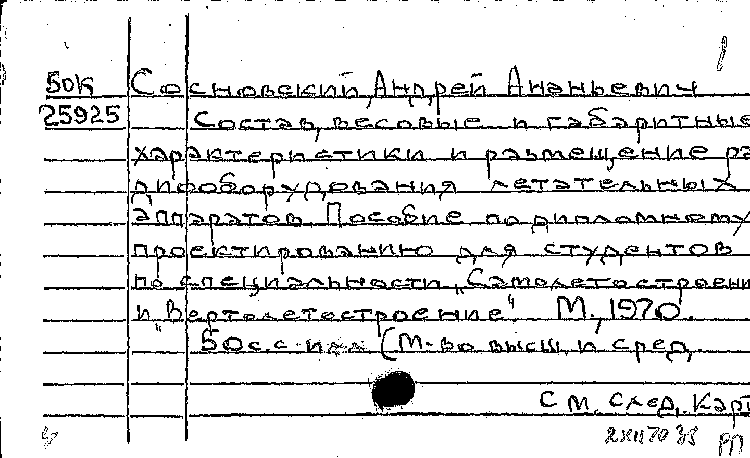 БОК Сосновский, Андрей Ананьевич
25925 Состав, весовые и габаритные
характеристики и размещение ра
диооборудования летательных
аппаратов. Пособие по дипломному
проектированию для студентов
по специальности „Самолетостроени
и „Вертолетостроение". М., 1970.
50с. с илл (М-во высш. и сред.
См. след. карт
РП